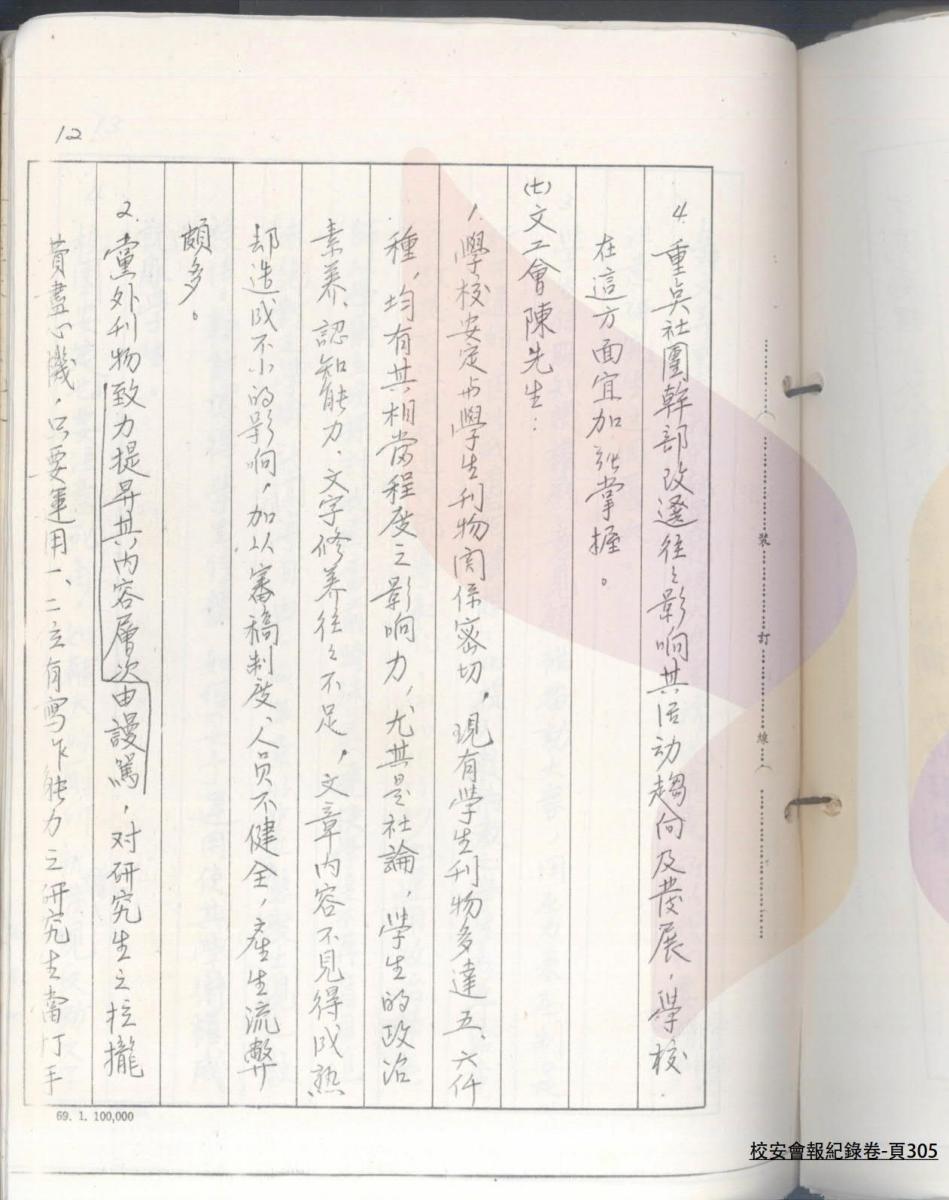 12
4.重點社團幹部改選往々影响其活动趨向及發展,學校
在這方面宜加強掌握。
(七)文工會陳先生:
1.學校安定与學生刊物関係密切,現有學生刊物多達五、六仟
種,均有其相當程度之影响力,尤其是社論,學生的政治
素养、認知能力、文字修养往々不足,文章内容不見得成熟
却造成不小的影响,加以審稿制度、人员不健全,產生流弊
頗多。
2.黨外刊物致力提昇其内容層次由謾罵,对研究生之拉攏
費盡心機,只要運用一、二位有寫作能力之研究生當打手
裝
訂
線
69. 1. 100,000
校安會報紀錄卷-頁305